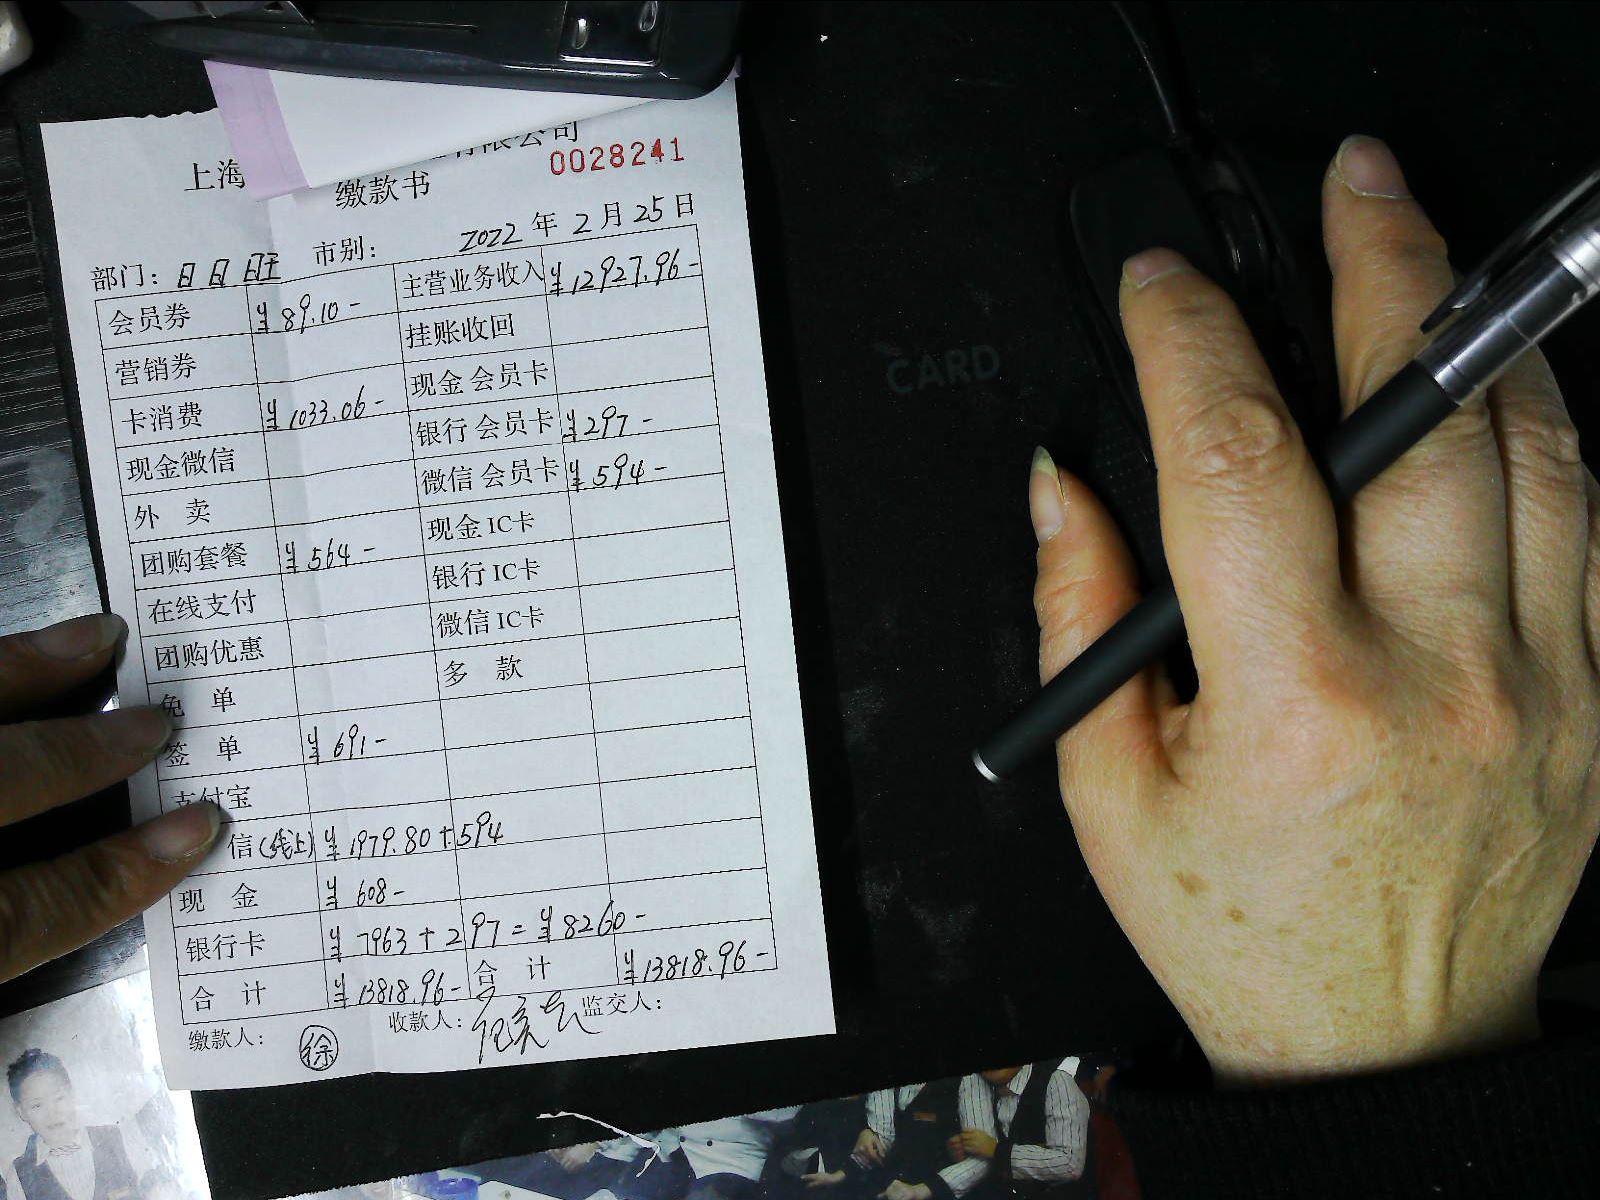 上海 有限公司
0028241
缴款书
2022 年 2 月 25 日
部门: 日日旺 市别:
会员券 ¥89.10- 主营业务收入 ¥12927.96-
营销券 挂账收回
卡消费 ¥1033.06- 现金 会员卡
现金微信 银行 会员卡 ¥297-
外 卖 微信 会员卡 ¥594-
团购套餐 ¥564- 现金 IC卡
在线支付 银行 IC卡
团购优惠 微信 IC卡
免 单 多 款
签 单 ¥691-
支付宝
信(线上) ¥1979.80+594
现 金 ¥608-
银行卡 ¥7963+297=¥8260-
合 计 ¥13818.96- 合 计 ¥13818.96-
缴款人: 徐 收款人: 监交人:
CARD